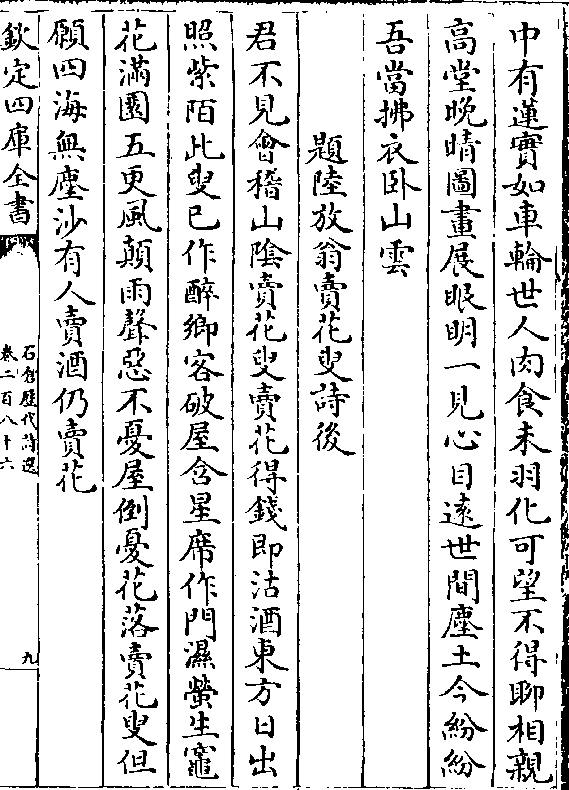 中有蓮實如車輪世人肉食未羽化可望不得聊相親
高堂晩晴圖畫展眼明一見心目遠世間塵土今紛紛
吾當拂衣卧山雲
題陸放翁賣花叟詩後
君不見會稽山陰賣花叟賣花得錢即沽酒東方日出
照紫陌此叟已作醉鄉客破屋含星席作門濕螢生竈
花滿園五更風顛雨聲惡不憂屋倒憂花落賣花叟但
願四海無塵沙有人賣酒仍賣花
欽定四庫全書
石倉歴代詩選
卷二百八十六
九